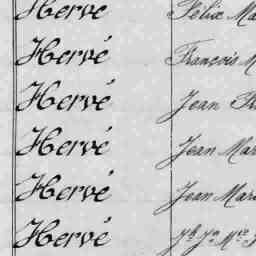 Hervé Félix Ma
Hervé François M
Hervé Jean
Hervé Jean Mar
Hervé Jean Mari
Hervé